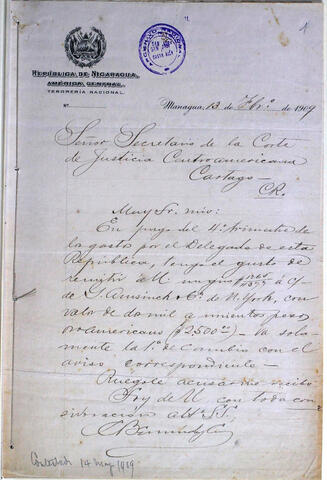 1
República de Nicaragua,
América Central.
Tesorería Nacional.
Nº
Managua, 13 de Fbrº de 1909
Señor Secretario de la Corte
de Justicia Centroamericana
Cartago—
CR.
Muy Sr. mio:
En pago del 4º trimestre de
los gastos por el Delegado de esta
República, tengo el gusto de
remitir á U un giro á c/
de & Cº de N. York, con
valor de dos mil quinientos pesos
oro americano ($2,500º)— va sola-
mente la 1ª de cambio con el
aviso correspondiente—
Ruégole acusarme recibo
Soy de U con toda con
sideración atto. S. S.
Contestada 14 mayo 1909